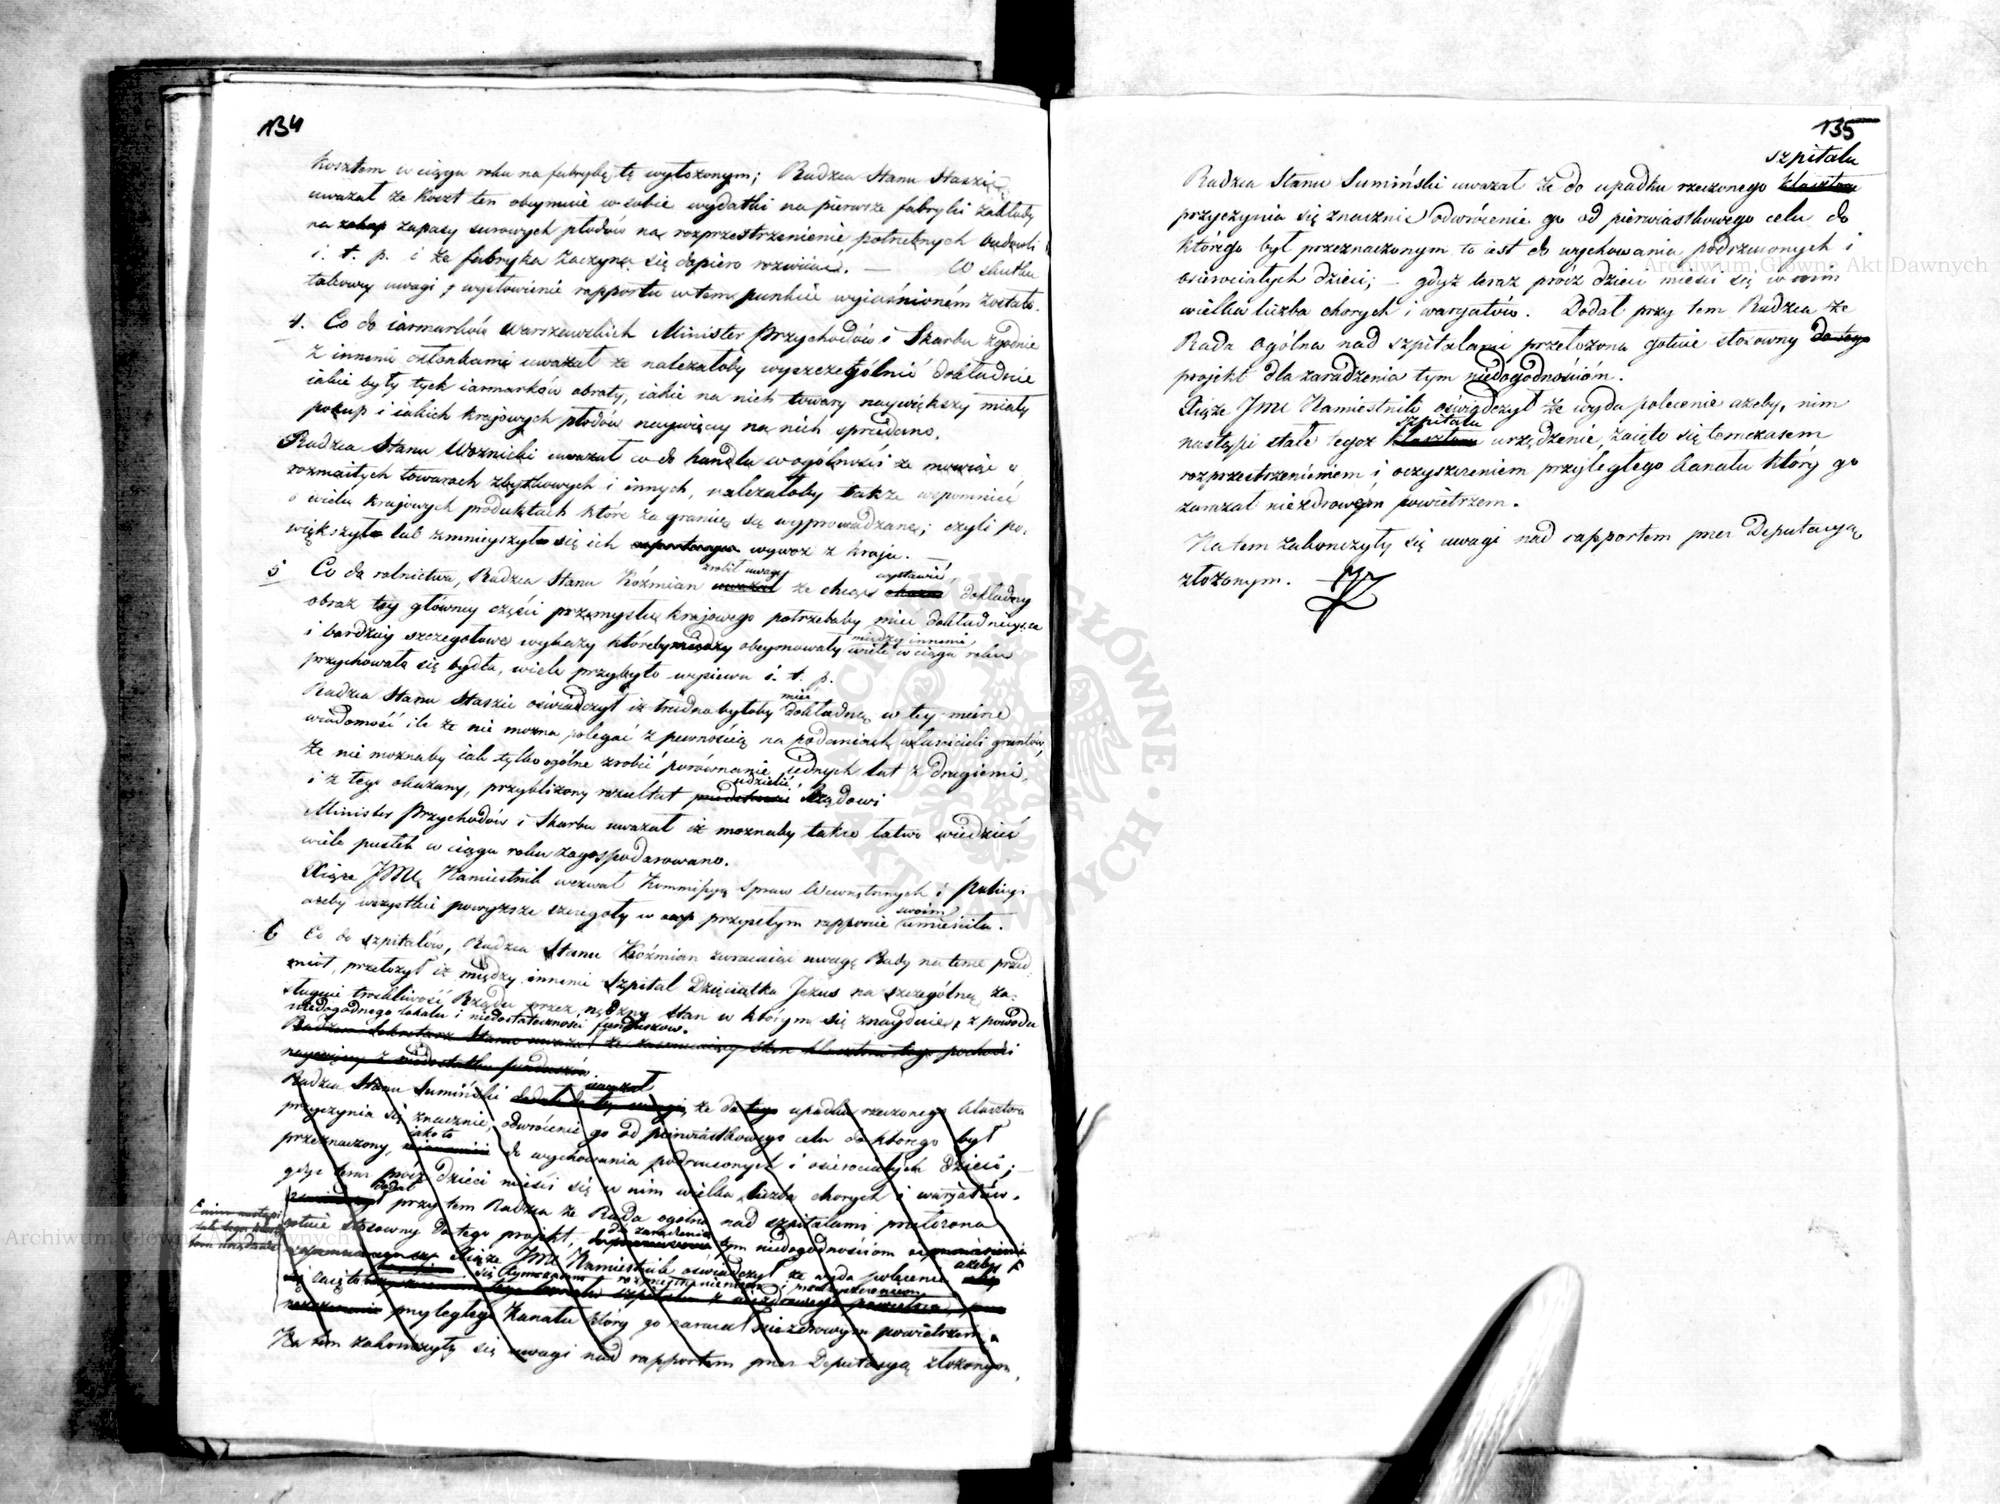 134
kosztem w ciągu roku na fabrykę tę wyłożonym; Radzca Stanu Staszic
uważał że koszt ten obeymuie w sobie wydatki na pierwsze fabryki zakłady
na zakup zapasy surowych płodów na rozprzestrzenienie potrzebnych budowli
i. t. p. i że fabryka zaczyna się dopiero rozwiiać. — W skutku
takowey uwagi wysłowienie rapportu w tem punkcie wyiaśnioném zostało.
4. Co do iarmarków Warszawskich Minister Przychodów i Skarbu zgodnie
z innemi członkami uważał że należałoby wyszczególnić dokładnie
iakie były tych iarmarków obroty, iakie na nich towary naywiększy miały
pokup i iakich kraiowych płodów naywięcey na nich sprzedano.
Radzca Stanu Woznicki uważał co do handlu w ogólności że mówiąc o
rozmaitych towarach zbytkowych i innych, należałoby także wspomnieć
o wielu kraiowych produktach które za granicę są wyprowadzane; czyli po-
większyło lub zmnieyszyło się ich exportacya wywoz z kraju. —
5 Co do rolnictwa, Radzca Stanu Koźmian uważał zrobił uwagę że chcąc wystawić, dokładny
obraz tey główney części przemysłu kraiowego potrzebaby mieć dokładnieysze
i bardziey szczegółowe wykazy któreby między obeymowały między innemi, wiele w ciągu roku
przychowało się bydła, wiele przybyło wysiewu i. t. p.
Radzca Stanu Staszic oświadczył iż trudno byłoby mieć dokładną w tey mierze
wiadomość ile że nie można polegać z pewnością na podaniach właścicieli gruntów,
że nie możnaby iak tylko ogólne zrobić porównanie iednych lat z drugiemi,
i z tego okazany, przybliżony rezultat udzielić Rządowi
Minister Przychodów i Skarbu uważał iż możnaby także łatwo wiedzieć
wiele pustek w ciągu roku zagospodarowano.
Xiąże JMć Namiestnik wezwał Kommissyą Spraw Wewnętrznych i Policyi
ażeby wszystkie powyższe szczegóły w przyszłym rapporcie swoim umieściła.
6 Co do szpitalów, Radzca Stanu Koźmian zwracaiąc uwagę Rady na tenże przed-
miot, przełożył iż między innemi Szpital Dzięciątka Jezus na szczególną za-
sługuie troskliwość Rządu przez nędzny stan w którym się znayduie, z powodu
niedogodnego lokalu i niedostateczności funduszow.
Radzca Sekretarz Stanu uważał że zasmucaiący stan klasztoru tego pochodzi
naywięcey z niedostatku funduszów.
Radzca Stanu Sumiński dodał do tey uwagi, uważał że do tego upadku rzeczonego klasztoru
przyczynia się znacznie, odwrócenie go od pierwiastkowego celu do którego był
przeznaczony, jako to do wychowania podrzuconych i osierociałych dzieci; —
gdyż teraz prócz dzieci mieści się w nim wielka liczba chorych i waryatów.
dodał przy tem Radzca że Rada ogólna nad szpitalami przełożona
gotuie stosowny do tego projekt, dla zaradzenia tym niedogodnościom
Xiąże JMć Namiestnik oświadczył że wyda polecenie ażeby
nim nastąpi
zaięto się tymczasem rozprzestrzenieniem i
przyległego Kanału który go zarażał niezdrowym powietrzem.
Na tem zakończyły się uwagi nad rapportem przez Deputacyą złożonym.
135
szpitalu
Radzca Stanu Sumiński uważał że do upadku rzeczonego klasztoru
przyczynia się znacznie odwrócenie go od pierwiastkowego celu do
którego był przeznaczonym to iest do wychowania podrzuconych i
osierociałych dzieci; — gdyż teraz prócz dzieci mieści się w nim
wielka liczba chorych i waryatów. Dodał przy tem Radzca że
Rada Ogólna nad szpitalami przełożona gotuie stosowny do tego
projekt dla zaradzenia tym niedogodnościom.
Xiąże JMć Namiestnik oświadczył że wyda polecenie ażeby, nim
szpitalu
nastąpi stałe tegoż klasztoru urządzenie, zaięto się tymczasem
rozprzestrzenieniem i oczyszczeniem przyległego kanału który go
zarażał niezdrowym powietrzem.
Na tem zakończyły się uwagi nad rapportem przez Deputacyą
złożonym.
Archiwum Główne Akt Dawnych
Archiwum Główne Akt Dawnych